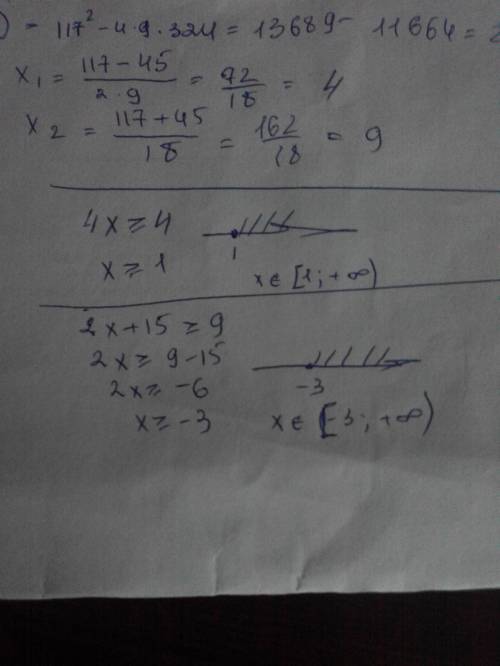 ) = 117² - 4·9·324 = 13689 - 11664 = 2
x₁ = (117 - 45)/(2·9) = 72/18 = 4
x₂ = (117 + 45)/18 = 162/18 = 9
4x ≥ 4
x ≥ 1
1
x ∈ [1; +∞)
2x + 15 ≥ 9
2x ≥ 9 - 15
2x ≥ -6
-3
x ≥ -3
x ∈ [-3; +∞)